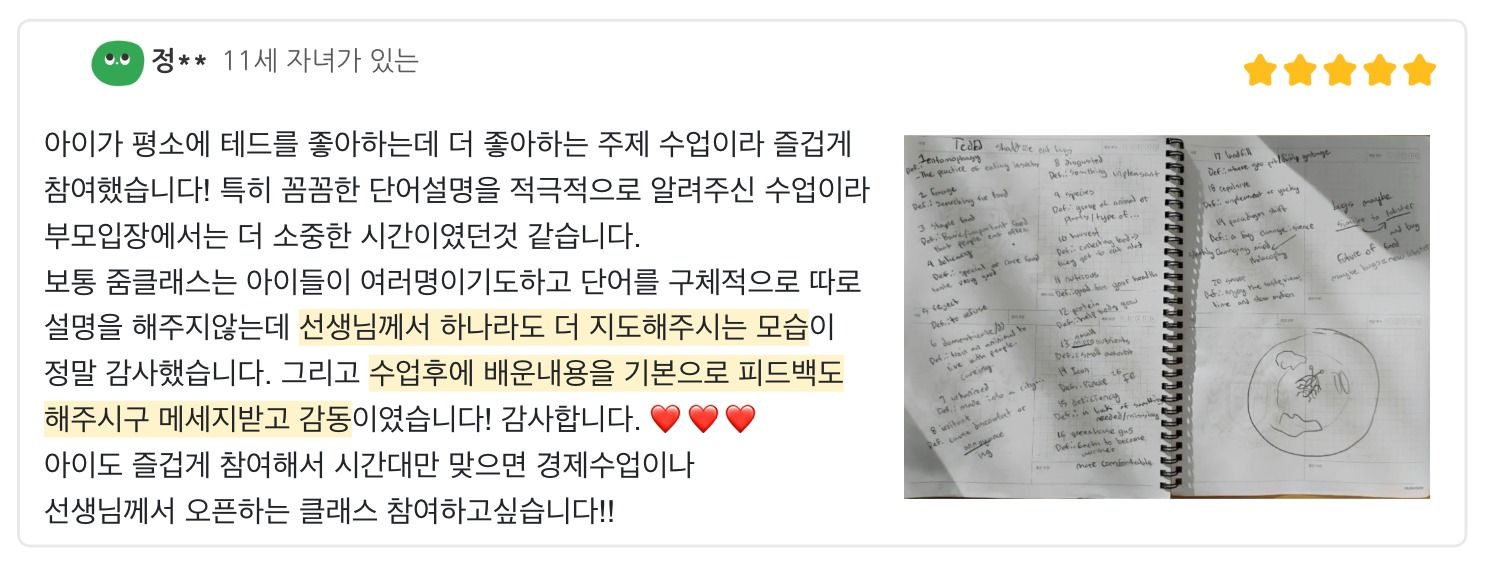 정** 11세 자녀가 있는
아이가 평소에 테드를 좋아하는데 더 좋아하는 주제 수업이라 즐겁게
참여했습니다! 특히 꼼꼼한 단어설명을 적극적으로 알려주신 수업이라
부모입장에서는 더 소중한 시간이였던것 같습니다.
보통 줌클래스는 아이들이 여러명이기도하고 단어를 구체적으로 따로
설명을 해주지않는데 선생님께서 하나라도 더 지도해주시는 모습이
정말 감사했습니다. 그리고 수업후에 배운내용을 기본으로 피드백도
해주시구 메세지받고 감동이였습니다! 감사합니다. ❤️ ❤️ ❤️
아이도 즐겁게 참여해서 시간대만 맞으면 경제수업이나
선생님께서 오픈하는 클래스 참여하고싶습니다!!
1 entomophagy
Def.: The practice of eating insects
2 forage
Def.: Searching for food
3 staple food
Def.: Basic/important food
that people eat often
4 delicacy
Def.: special or rare food
taste very good
5 reject
Def.: to refuse
Def.: train an animal to
live with people.
Def.: made into a city...
8 irritant
annoyance
8 disgusted
Def.: something unpleasant
9 species
Def.: group of animal or
plants/type of...
10 harvest
Def.: collecting
11 nutrious
Def.: good for your health
12 protein
Def.: help body grow
13 small
micronutrients
Def.: small nutrients
14 Icon
15 deficiency
Def.: a lack of something
needed/missing
16 greenhouse gas
more comfortable
17 landfill
Def.: where you put/bury garbage
18 repulsive
Def.: unpleasant or yucky
19 paradigm shift
Def.: a big change
20 savor
Def.: enjoy the taste/view,
time and slow motion
bugs maybe
similar to lobster
and bug
Future of food